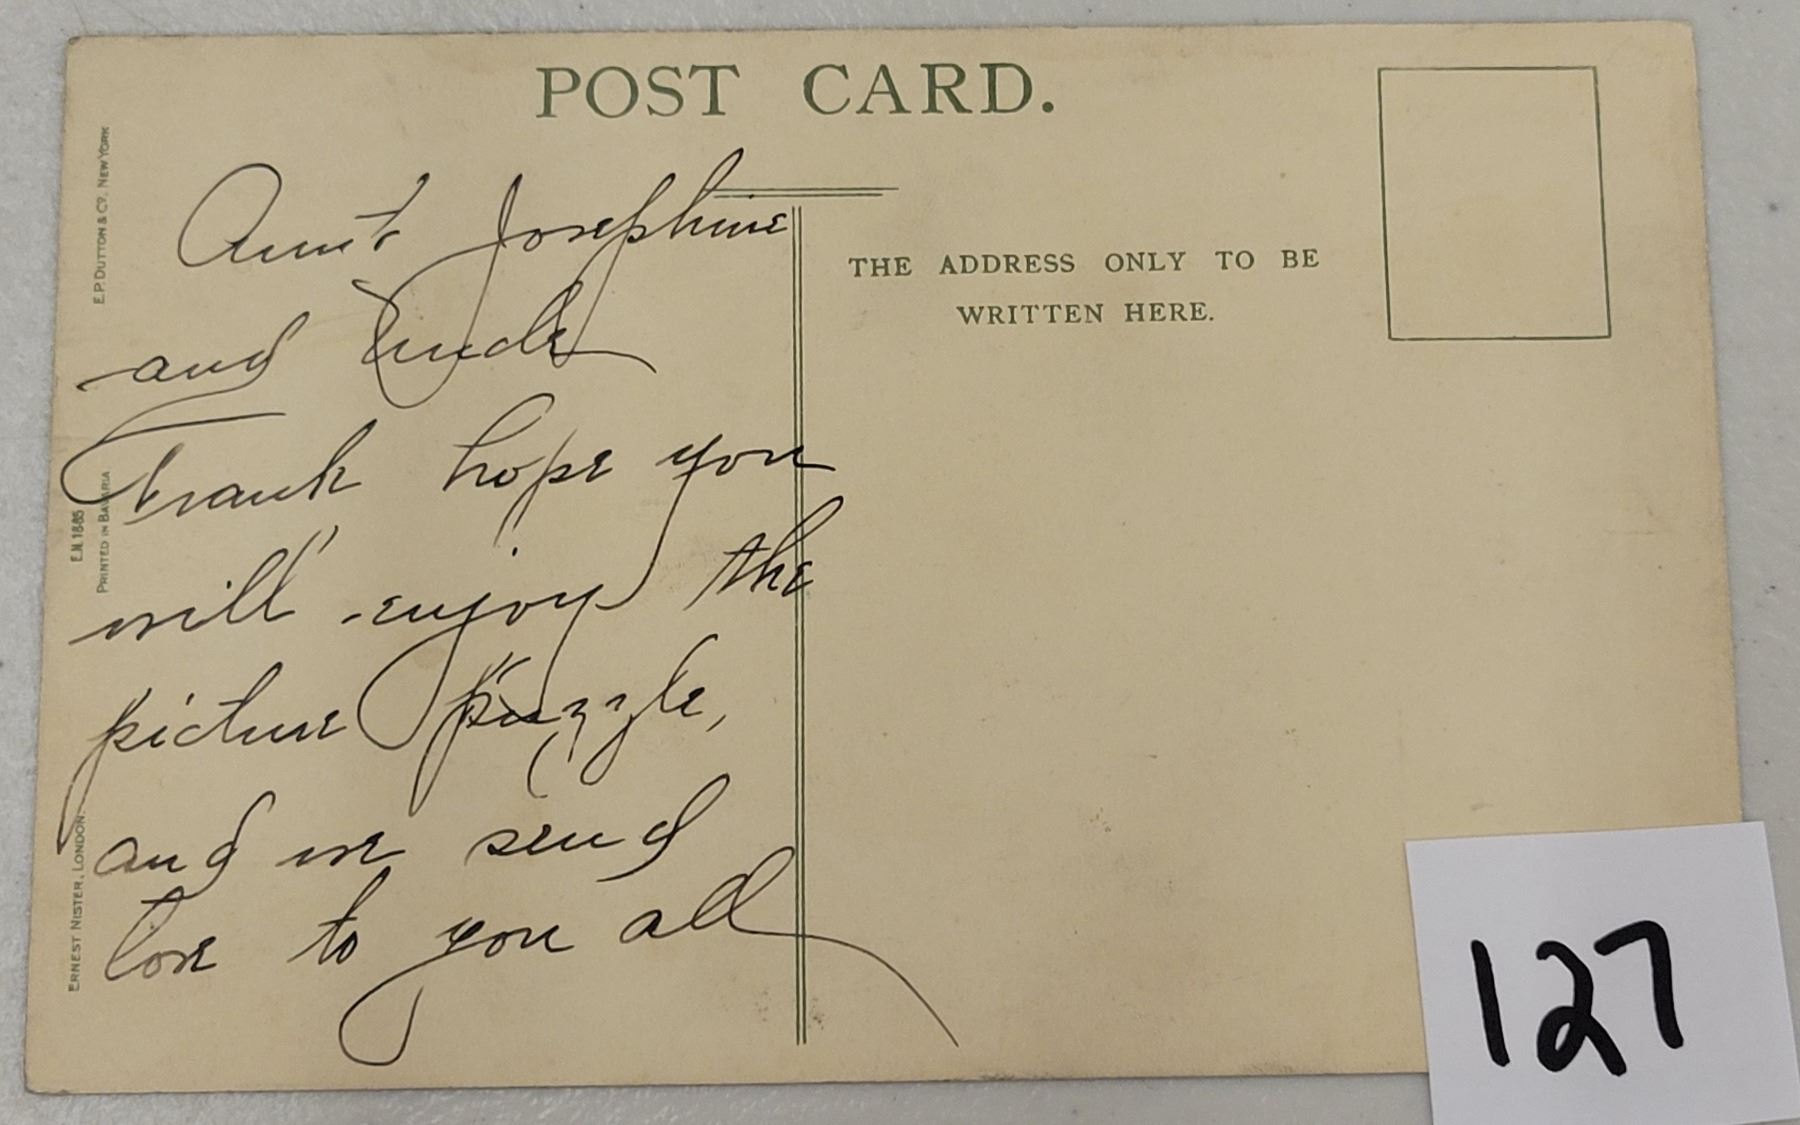 POST CARD.
THE ADDRESS ONLY TO BE
WRITTEN HERE.
Aunt Josephine
and Uncle
Frank hope you
will enjoy the
picture puzzle,
and we send
love to you all
E.P. DUTTON & CO. NEW YORK
E.N. 1885
PRINTED IN BAVARIA
ERNEST NISTER, LONDON.
127